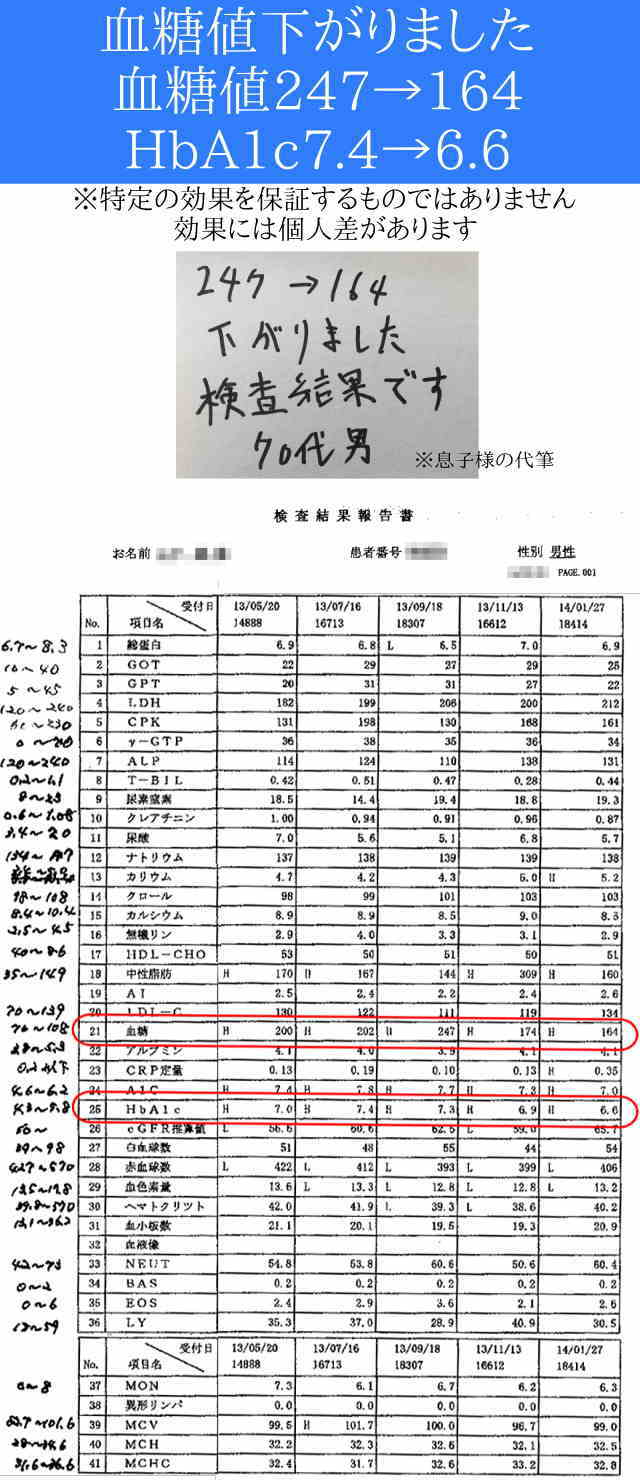 血糖値下がりました
血糖値247→164
HbA1c7.4→6.6
※特定の効果を保証するものではありません
効果には個人差があります
247 →164
下がりました
検査結果です
70代男
※息子様の代筆
検査結果報告書
お名前 患者番号 性別 男性
PAGE.001
受付日 13/05/20 13/07/16 13/09/18 13/11/13 14/01/27
No. 項目名 14888 16713 18307 16612 18414
6.7～8.3 1 総蛋白 6.9 6.8 L 6.5 7.0 6.9
10～40 2 GOT 22 29 27 29 25
5～45 3 GPT 20 31 31 27 22
120～240 4 LDH 182 199 206 200 212
5 CPK 131 198 130 168 161
6 γ-GTP 36 38 35 36 34
120～240 7 ALP 114 124 110 138 131
0.2～1.1 8 T-BIL 0.42 0.51 0.47 0.28 0.44
8～23 9 尿素窒素 18.5 14.4 19.4 18.8 19.3
0.6～1.08 10 クレアチニン 1.00 0.94 0.91 0.96 0.87
3.4～7.0 11 尿酸 7.0 5.6 5.1 6.8 5.7
12 ナトリウム 137 138 139 139 138
13 カリウム 4.7 4.2 4.3 5.0 H 5.2
98～108 14 クロール 98 99 101 103 103
8.4～10.4 15 カルシウム 8.9 8.9 8.5 9.0 8.3
2.5～4.5 16 無機リン 2.9 4.0 3.3 3.1 2.9
40～86 17 HDL-CHO 53 50 51 50 51
35～149 18 中性脂肪 H 170 H 167 144 H 309 H 160
19 AI 2.5 2.4 2.2 2.4 2.6
70～139 20 LDL-C 130 122 111 119 134
70～108 21 血糖 H 200 H 202 H 247 H 174 H 164
22 アルブミン 4.1 4.0 3.9 4.1 4.1
23 CRP定量 0.13 0.19 0.10 0.13 H 0.35
4.6～6.2 24 A1C H 7.4 H 7.8 H 7.7 H 7.3 H 7.0
25 HbA1c H 7.0 H 7.4 H 7.3 H 6.9 H 6.6
26 eGFR推算値 L 56.6 60.6 62.5 L 59.0 65.7
39～98 27 白血球数 51 48 55 44 54
427～570 28 赤血球数 L 422 L 412 L 393 L 399 L 406
29 血色素量 13.6 L 13.3 L 12.8 L 12.8 L 13.2
30 ヘマトクリット 42.0 41.9 L 39.3 L 38.6 40.2
31 血小板数 21.1 20.1 19.5 19.3 20.9
32 血液像
42～73 33 NEUT 54.8 53.8 60.6 50.6 60.4
0～2 34 BAS 0.2 0.2 0.2 0.2 0.2
0～6 35 EOS 2.4 2.9 3.6 2.1 2.6
36 LY 35.3 37.0 28.9 40.9 30.5
受付日 13/05/20 13/07/16 13/09/18 13/11/13 14/01/27
No. 項目名 14888 16713 18307 16612 18414
0～8 37 MON 7.3 6.1 6.7 6.2 6.3
38 異形リンパ 0.0 0.0 0.0 0.0 0.0
39 MCV 99.5 H 101.7 100.0 96.7 99.0
40 MCH 32.2 32.3 32.6 32.1 32.5
41 MCHC 32.4 31.7 32.6 33.2 32.8